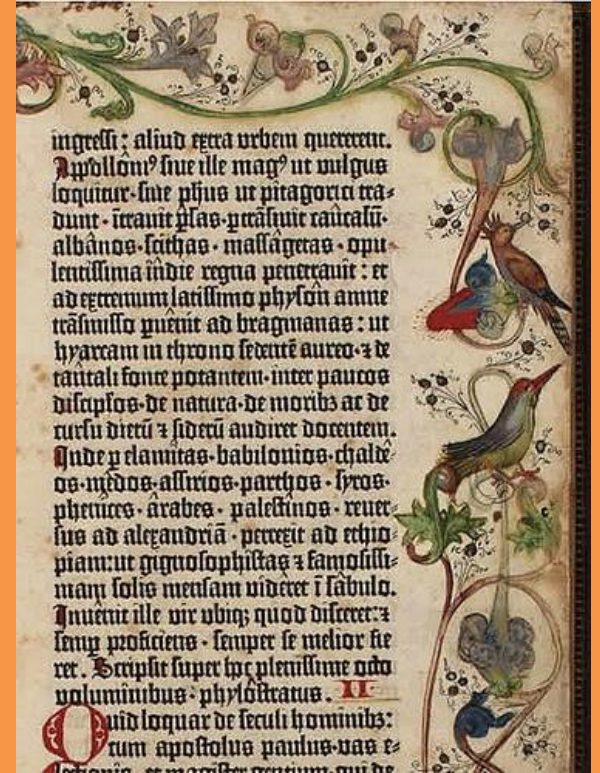 ingressi : aliud extra urbem quererent.
Appollôni⁹ siue ille mag⁹ ut vulgus
loquitur · siue ph̄us ut pitagorici tra-
dunt · ītrauit ꝑsas · ꝑtrāsiuit caucasū ·
albânos · scithas · massâgetas · opu
lentissima īndie regna penetrauit : et
ad extremum latissimo physôn amne
trāsmisso ꝑuēit ad bragmanas : ut
hyarcam in throno sedentē aureo · ⁊ de
tantali fonte potantem · inter paucos
discip̄los · de natura · de moribꝫ ac de
cursu dierū ⁊ siderū audiret docentem.
Inde ꝑ elamitas · babilonios · chaldê-
os · mêdos · assirios · parthos · syros ·
phenices · ârabes · palestînos · reuer-
sus ad alexandriā · perrexit ad ethio
piam : ut gignosophistas ⁊ famosissi-
mam solis mensam vidêret ī sâbulo.
Inuênit ille vir ubiqꝫ quod disceret : ⁊
semꝑ proficiens · semper se melior fie
ret . Scripsit super hoc plenissime octo
voluminibus : phylôstratus . II
Quid loquar de seculi hominibꝫ :
cum apostolus paulus · vas e-
lectionis · et magister gentium · qui de